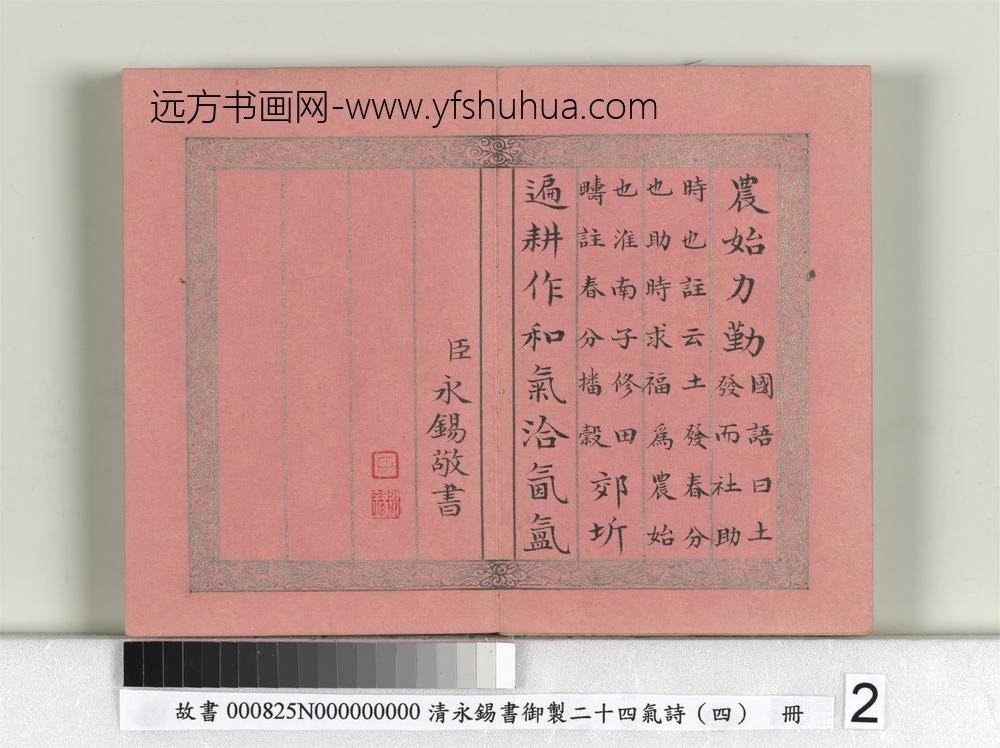 远方书画网-www.yfshuhua.com
農始力勤國語曰土
發而社助
時也註云土發春分
也助時求福爲農始
也淮南子修田
疇註春分播穀郊圻
遍耕作和氣洽氤氳
臣永錫敬書
故書 000825N000000000 清永錫書御製二十四氣詩（四） 冊
2